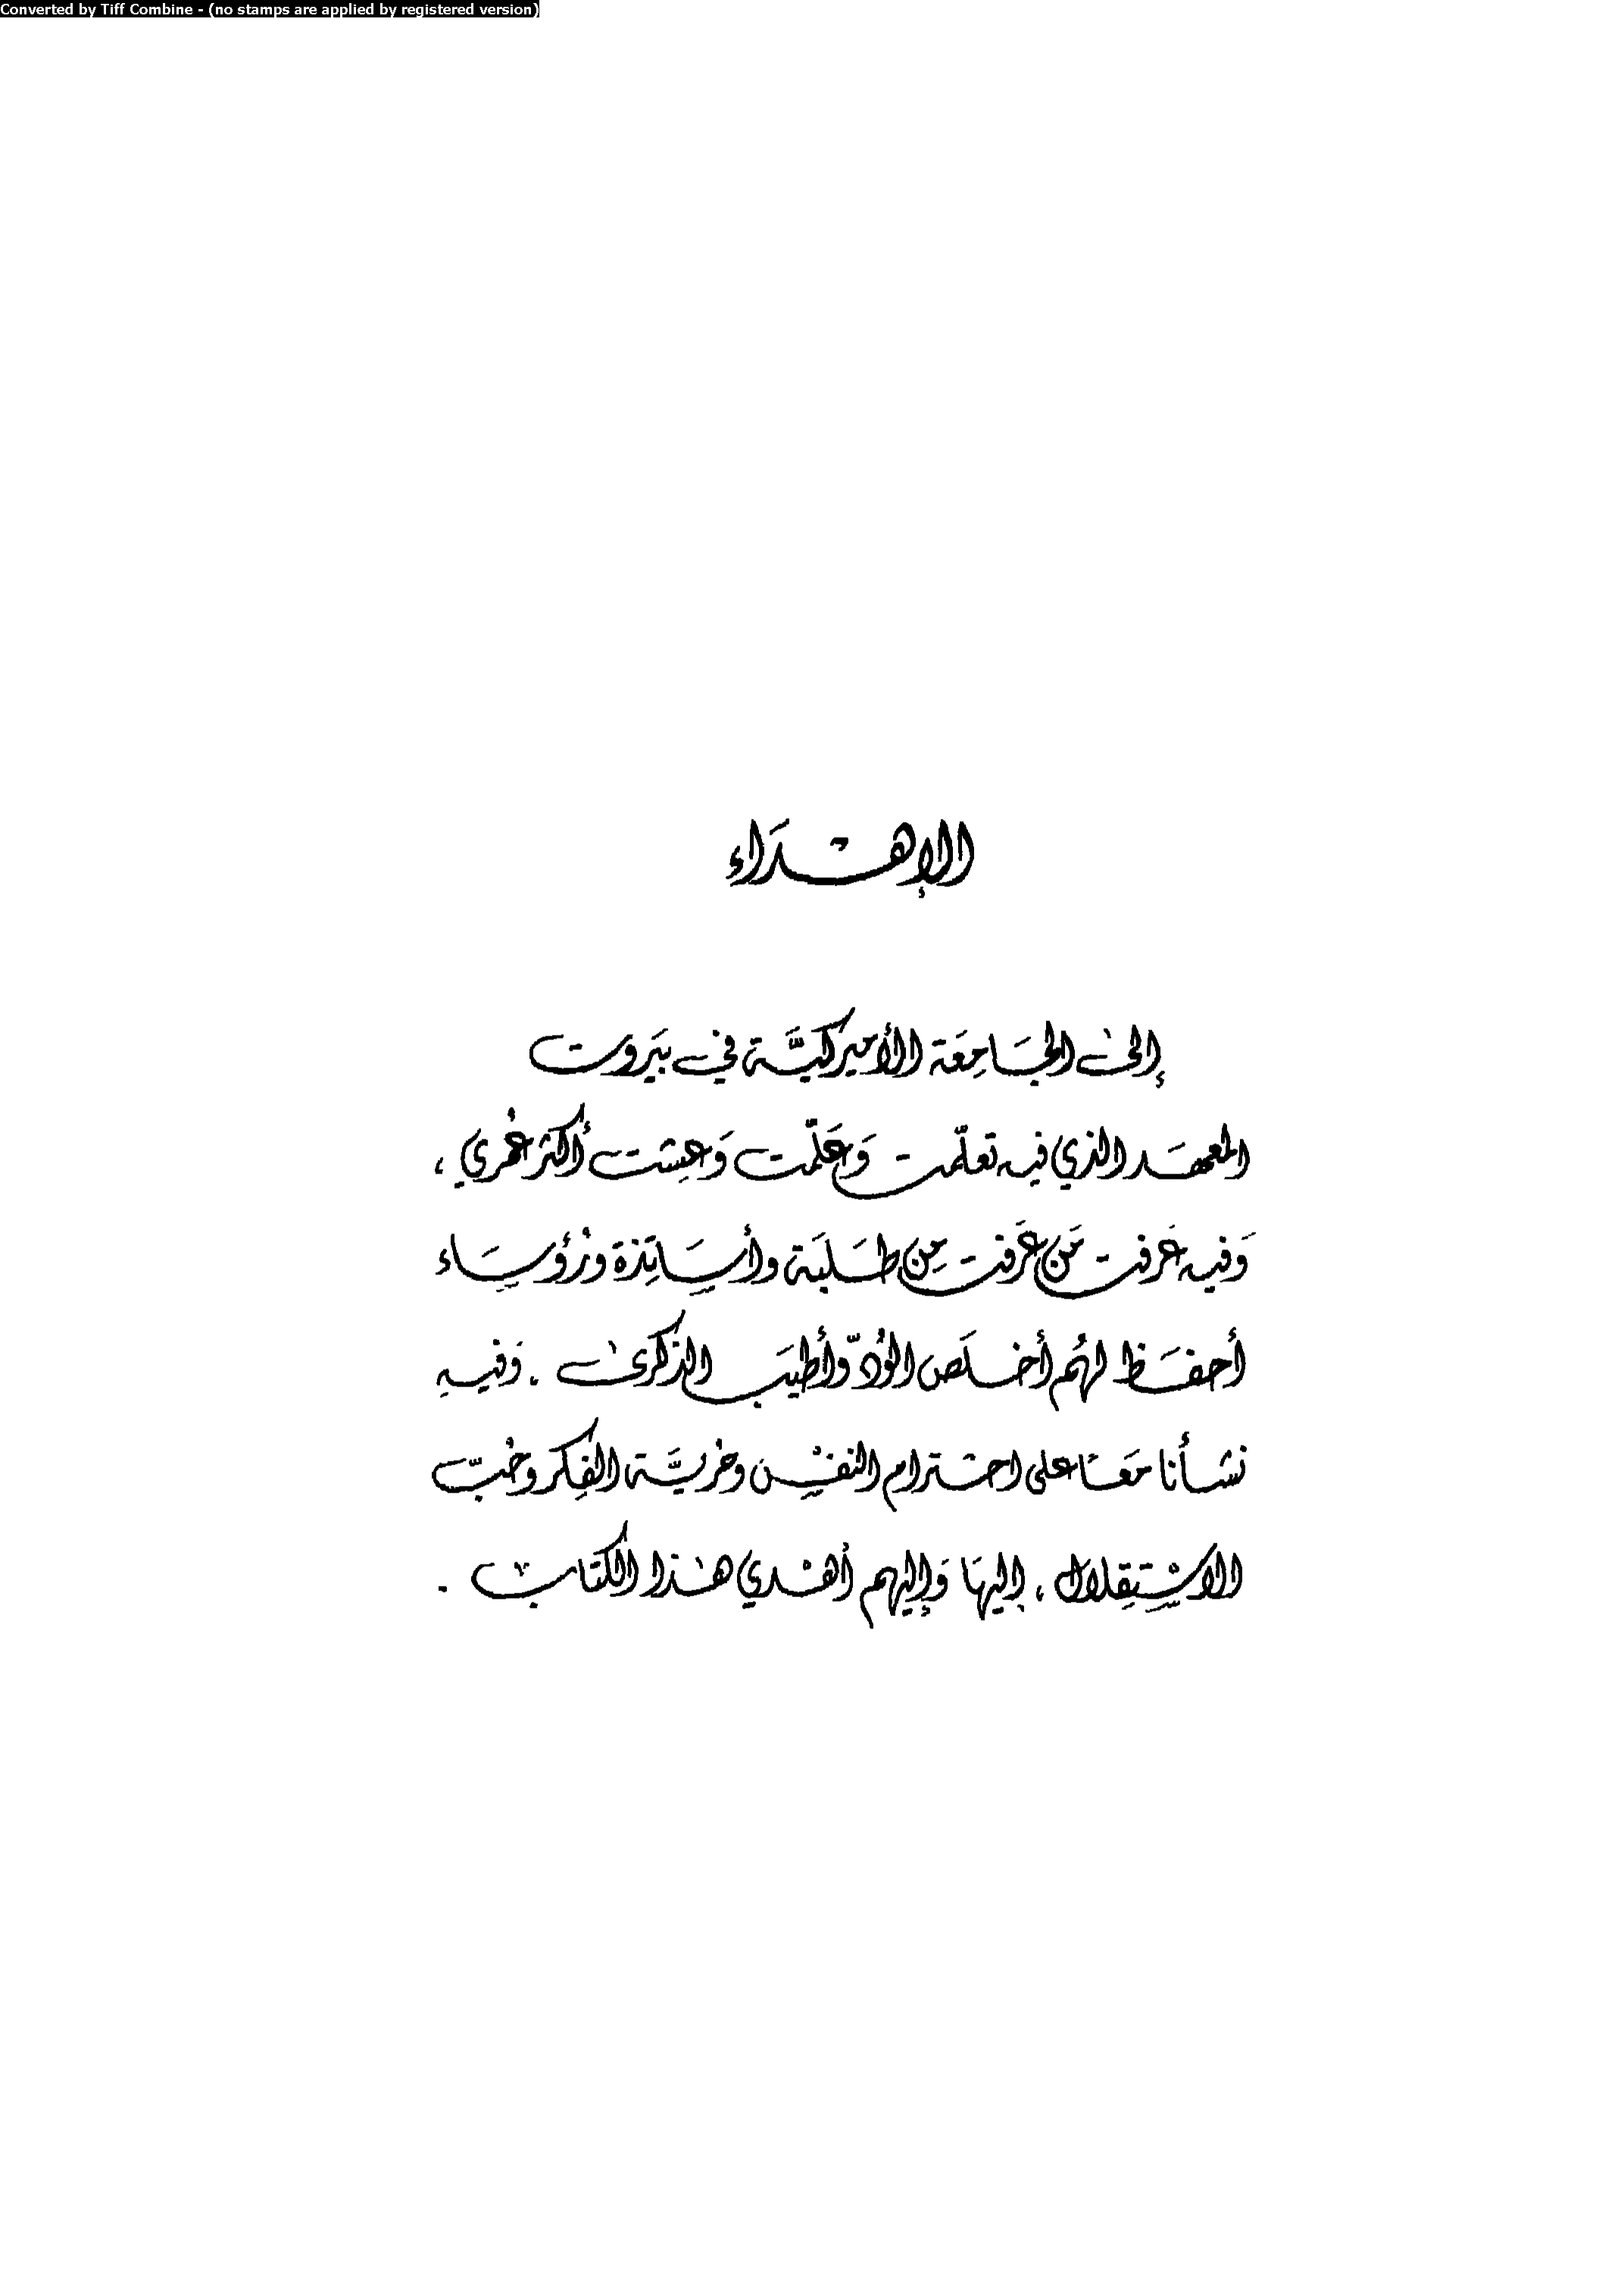 Converted by Tiff Combine - (no stamps are applied by registered version)
الإهْدَاء
إلىٰ الجَامِعَة الأميركيَّة في بيَروت
المعهَد الذي فيه تعلّمت وَعَلّمت وَعِشت أكثر عُمري ،
وَفيه عَرفت مَن عَرفت مِن طَلَبَة وأسَاتِذة ورُؤسَاء
أحفَظ لهُم أخلَص الوُدّ وأطيَب الذكرىٰ . وَفيهِ
نشأنا مَعًا على احتَرام النفسْ وحُريَّة الفِكر وحُبّ
الاسْتِقلال ، إليهَا وَإليهم أهْدي هٰذا الكتَابْ .